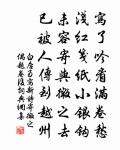 寫了吟看滿卷愁
淺紅箋紙小銀鈎
未容寄與微之去
已被人傳到越州
白居易寫新詩寄微之
偶題卷後詞典網集